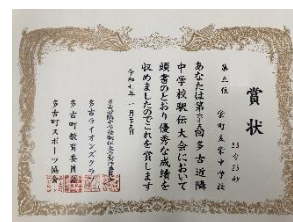 賞状
33分23秒
第三位 栄町立栄中学校
あなたは第六十五回多古近隣
中学校駅伝大会において
頭書のとおり優秀な成績を
収めましたのでこれを賞します
令和七年一月二十五日
多古ライオンズクラブ
多古町教育委員会
多古町スポーツ協会